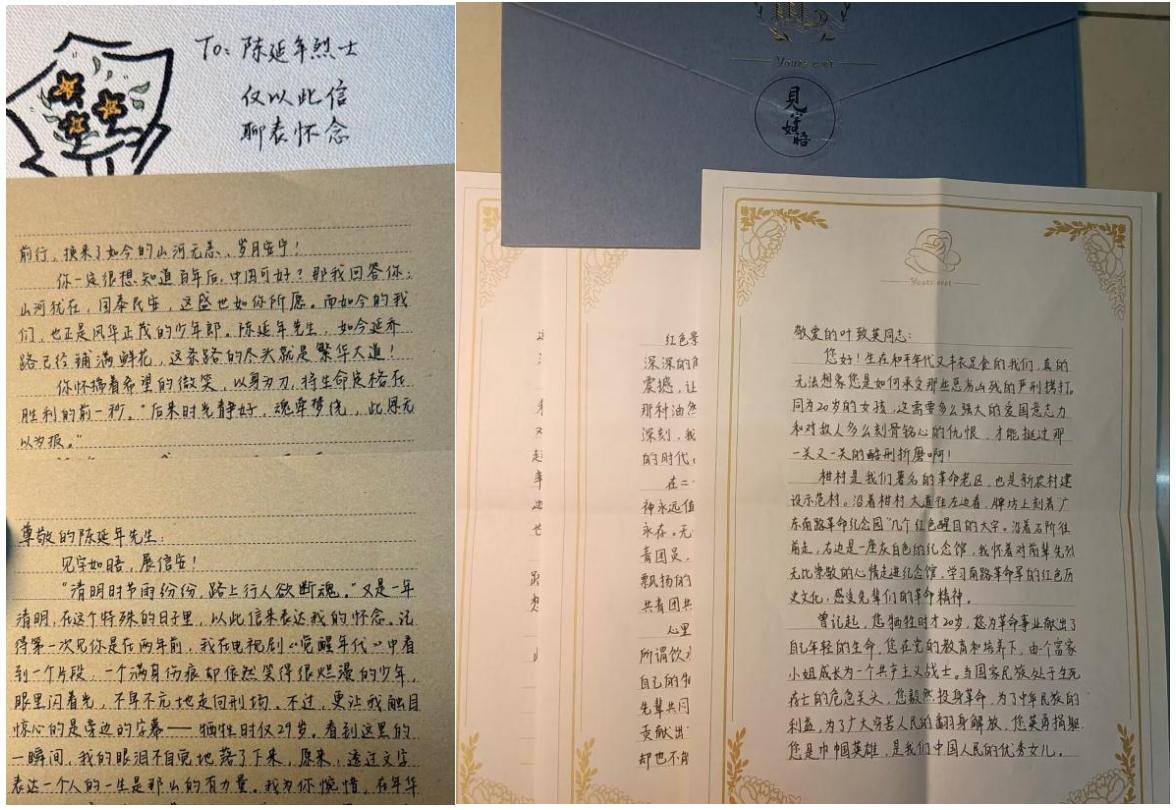 To: 陈延年烈士
仅以此信
聊表怀念
前行，换来了如今的山河无恙、岁月安宁！
你一定很想知道百年后，中国可好？那我回答你：
山河犹在，国泰民安，这盛世如你所愿。而如今的我
们，也正是风华正茂的少年郎。陈延年先生，如今延乔
路已经铺满鲜花，这条路的尽头就是繁华大道！
你怀揣着希望的微笑，以身为刃，将生命定格在
胜利的前一秒。"后来时光静好，魂牵梦绕，此恩无
以为报。"
尊敬的陈延年先生：
见字如晤，展信安！
"清明时节雨纷纷，路上行人欲断魂。"又是一年
清明，在这个特殊的日子里，以此信来表达我的怀念。记
得第一次见你是在两年前，我在电视剧《觉醒年代》中看
到一个片段，一个满身伤痕却依然笑得很烂漫的少年，
眼里闪着光，不卑不亢地走向刑场。不过，更让我触目
惊心的是旁边的字幕——牺牲时仅29岁。看到这里的
一瞬间，我的眼泪不自觉地落了下来，原来，透过文字
表达一个人的一生是那么的有力量。我为你惋惜，在年华
Yours ever
見字如晤
红色景
深深的
震撼，让
那种油然
深刻，我
的时代
在二
神永远值
永存。无
青团员，
飘扬的
共青团共
心里
所谓饮水
自己的
先辈共同
贡献出
却也不能
Yours ever
敬爱的叶致英同志：
您好！生在和平年代又丰衣足食的我们，真的
无法想象您是如何承受那些惨无人道的严刑拷打。
同为20岁的女孩，这需要多么强大的爱国意志力
和对敌人多么刻骨铭心的仇恨，才能挺过那
一关又一关的酷刑折磨啊！
柑村是我们著名的革命老区，也是新农村建
设示范村。沿着柑村大道往左边看，牌坊上刻着"广
东南路革命纪念园"几个红色醒目的大字。沿着石阶往
前走，右边是一座灰白色的纪念馆，我怀着对前辈先烈
无比崇敬的心情走进纪念馆，学习南路革命军的红色历
史文化，感受先辈们的革命精神。
曾记起，您牺牲时才20岁，您为革命事业献出了
自己年轻的生命。您在党的教育和培养下，由一个富家
小姐成长为一个共产主义战士。当国家民族处于生死
存亡的危急关头，您毅然投身革命，为了中华民族的
利益，为了广大穷苦人民的翻身解放，您英勇捐躯。
您是巾帼英雄，是我们中国人民的优秀女儿。